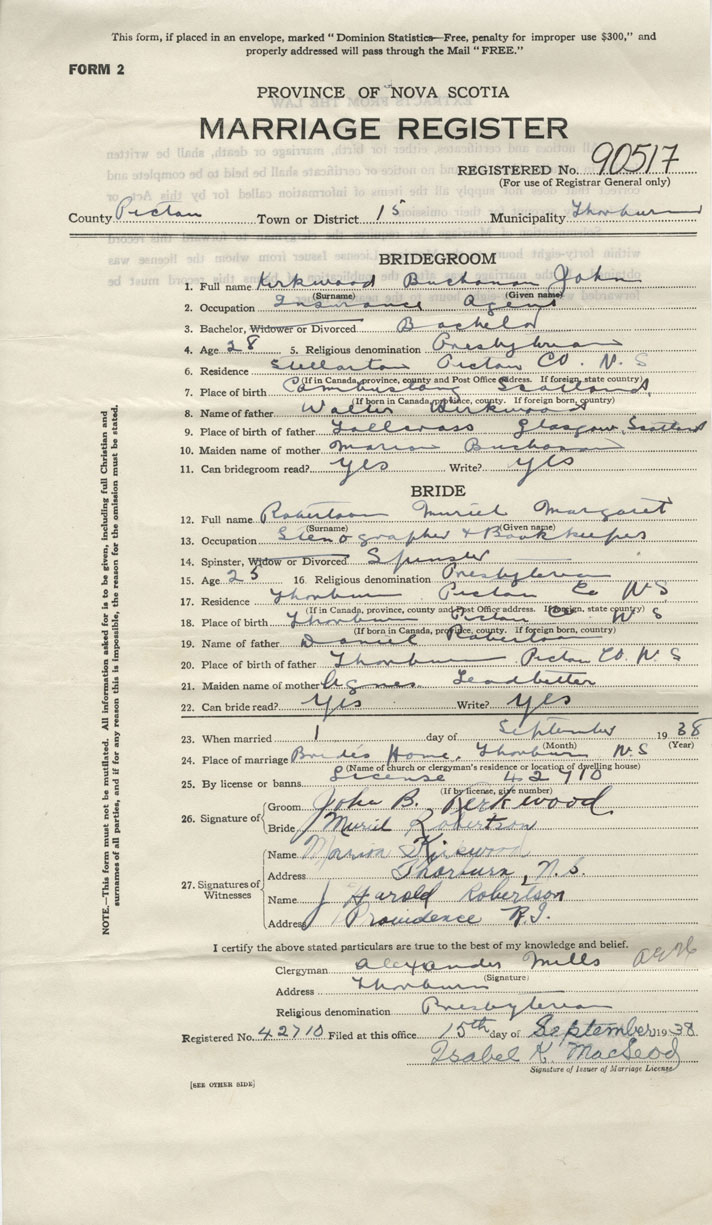 This form, if placed in an envelope, marked "Dominion Statistics—Free, penalty for improper use $300," and
properly addressed will pass through the Mail "FREE."
FORM 2
PROVINCE OF NOVA SCOTIA
MARRIAGE REGISTER
REGISTERED No. 90517
(For use of Registrar General only)
County Pictou Town or District 15 Municipality Thorburn
BRIDEGROOM
1. Full name Kirkwood Buchanan John
(Surname) (Given name)
2. Occupation Insurance Agent
3. Bachelor, Widower or Divorced Bachelor
4. Age 28 5. Religious denomination Presbyterian
6. Residence Stellarton Pictou Co. N.S
(If in Canada, province, county and Post Office address. If foreign, state country)
7. Place of birth Cambuslang Scotland,
(If born in Canada, province, county. If foreign born, country)
8. Name of father Walter Kirkwood
9. Place of birth of father Glasgow, Scotland
10. Maiden name of mother Marion Buchanan
11. Can bridegroom read? yes Write? yes
BRIDE
12. Full name Robertson Muriel Margaret
(Surname) (Given name)
13. Occupation Stenographer & Bookkeeper
14. Spinster, Widow or Divorced Spinster
15. Age 25 16. Religious denomination Presbyterian
17. Residence Thorburn Pictou Co N S
(If in Canada, province, county and Post Office address. If foreign, state country)
18. Place of birth Thorburn Pictou Co. N S
(If born in Canada, province, county. If foreign born, country)
19. Name of father Daniel Robertson
20. Place of birth of father Thorburn Pictou Co. N S
21. Maiden name of mother Agnes Leadbetter
22. Can bride read? yes Write? yes
23. When married 1 day of September 1938
(Month) (Year)
24. Place of marriage Bride's Home, Thorburn N S
(Name of church or clergyman's residence or location of dwelling house)
25. By license or banns License 42710
(If by license, give number)
26. Signature of Groom John B. Kirkwood
Bride Muriel Robertson
27. Signatures of Witnesses
Name Marion Kirkwood
Address Thorburn, N.S.
Name J Harold Robertson
Address Providence R.I.
I certify the above stated particulars are true to the best of my knowledge and belief.
Clergyman Alexander Mills
(Signature)
Address Thorburn
Religious denomination Presbyterian
Registered No. 42710 Filed at this office 15th day of September 1938
Isabel K. MacLeod
Signature of Issuer of Marriage License
[SEE OTHER SIDE]
NOTE.—This form must not be mutilated. All information asked for is to be given, including full Christian and
surnames of all parties, and if for any reason this is impossible, the reason for the omission must be stated.